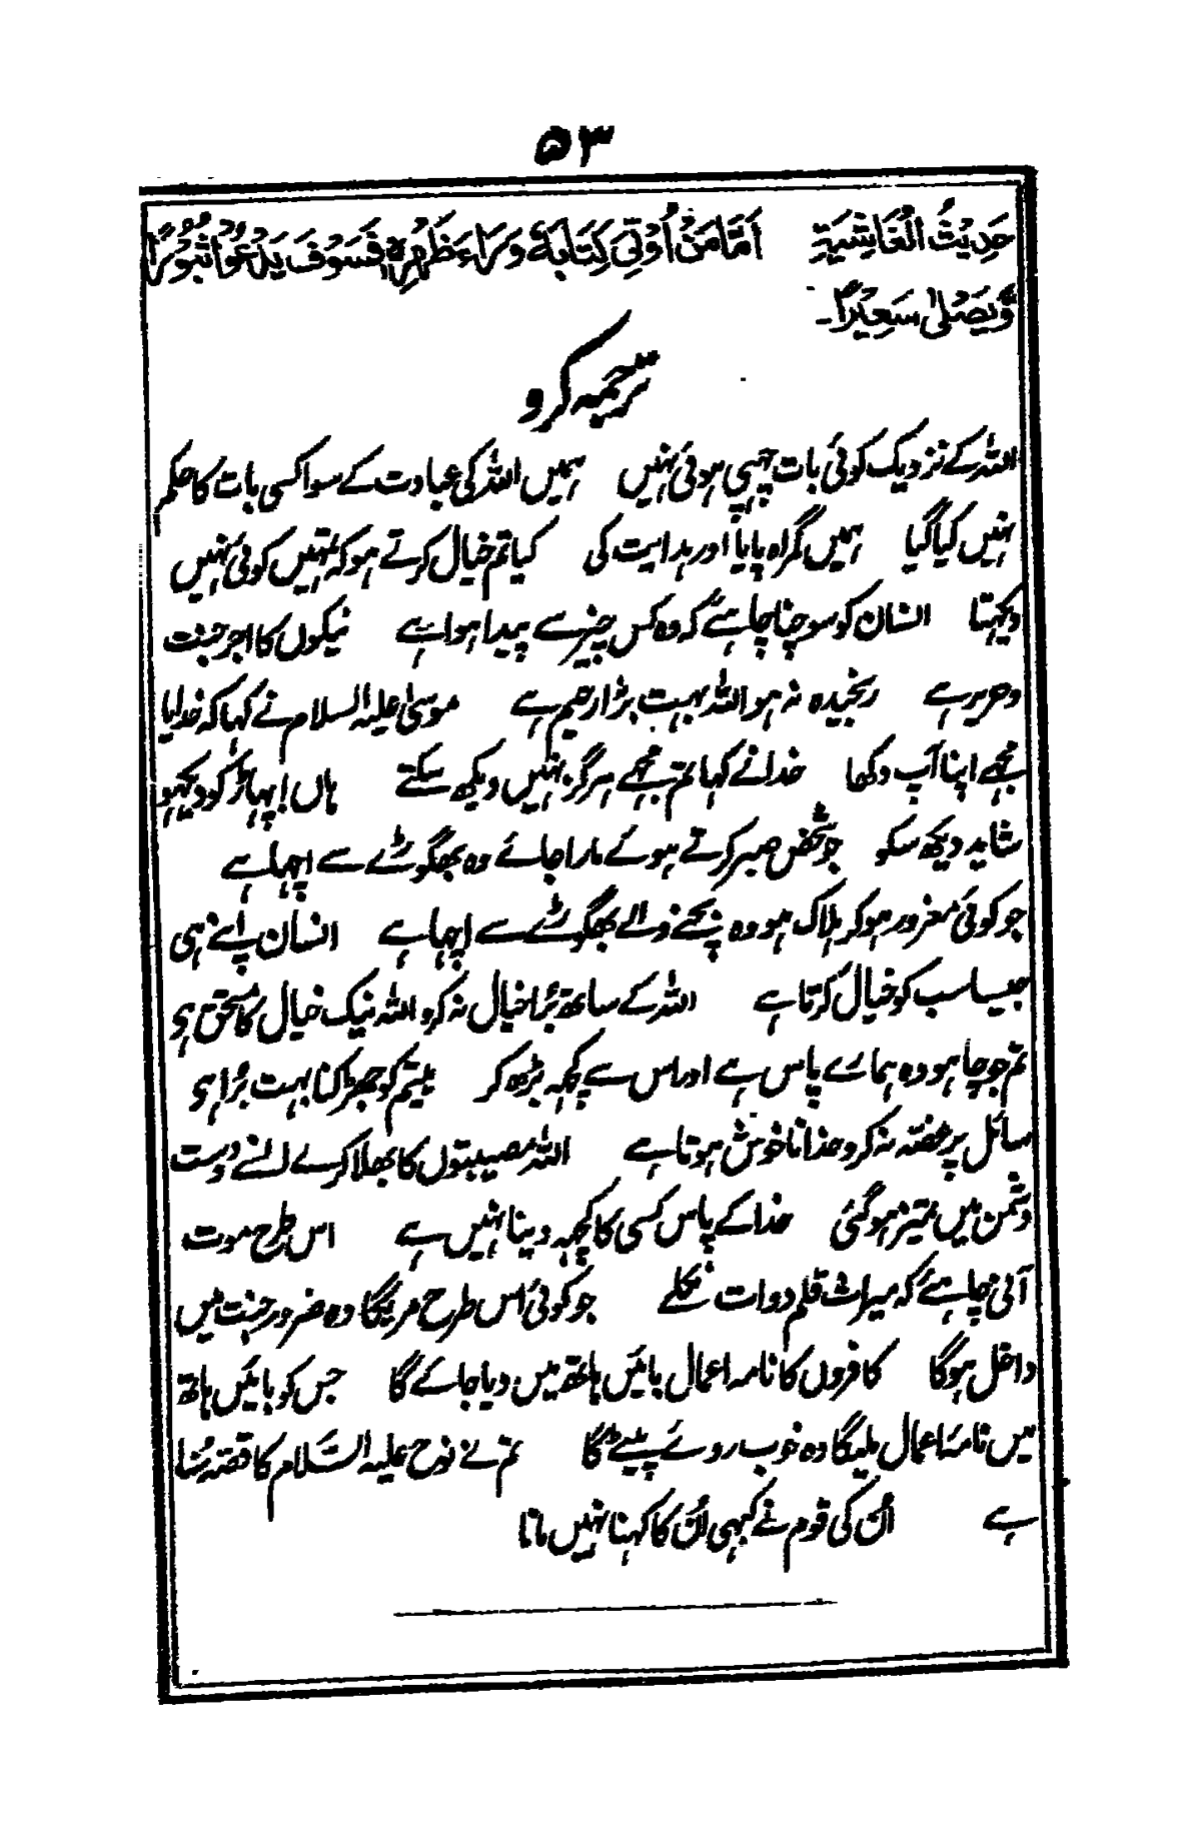 ۵۳
حَدِیْثُ الْغَاشِیَۃِ اَمَّا مَنْ اُوْتِیَ کِتَابَہٗ وَرَآءَ ظَھْرِہٖ فَسَوْفَ یَدْعُوْا ثُبُوْرًا
وَّیَصْلٰی سَعِیْرًا۔
ترجمہ کرو
اللہ کے نزدیک کوئی بات چھپی ہوئی نہیں ہمیں اللہ کی عبادت کے سوا کسی بات کا حکم
نہیں کیا گیا ہمیں گمراہ پایا اور ہدایت کی کیا تم خیال کرتے ہو کہ تمہیں کوئی نہیں
دیکہتا انسان کو سوچنا چاہئے کہ وہ کس چیز سے پیدا ہوا ہے نیکوں کا اجر جنت
و حریر ہے رنجیدہ نہ ہو اللہ بہت بڑا رحیم ہے موسیٰ علیہ السلام نے کہا کہ خدایا
مجہے اپنا آپ دکھا خدا نے کہا تم مجہے ہرگز نہیں دیکھ سکتے ہاں! پہاڑ کو دیکہو
شاید دیکھ سکو جو شخص صبر کرتے ہوئے مارا جائے وہ بھگوڑے سے اچہا ہے
جو کوئی مغرور ہو کر ہلاک ہو وہ بچنے والے بھگوڑے سے اچہا ہے انسان اپنے ہی
جیسا سب کو خیال کرتا ہے اللہ کے ساتھ بُرا خیال نہ کرو اللہ نیک خیال کا مستحق ہی
تم جو چاہو وہ ہمارے پاس ہے اور اس سے کچہہ بڑھ کر یتیم کو جھڑکنا بہت بُرا ہی
سائل پر غصہ نہ کرو خدا ناخوش ہوتا ہے اللہ مصیبتوں کا بھلا کرے ان سے دوست
دشمن میں تمیز ہو گئی خدا کے پاس کسی کا کچہہ دینا نہیں ہے اس طرح موت
آنی چاہئے کہ میراث قلم دوات نکلے جو کوئی اس طرح مریگا وہ ضرور جنت میں
داخل ہو گا کافروں کا نامہ اعمال بائیں ہاتھ میں دیا جائے گا جس کو بائیں ہاتھ
میں نامۂ اعمال ملیگا وہ خوب روئے پیٹے گا تم نے نوح علیہ السَّلام کا قصہ سُنا
ہے اُن کی قوم نے کبہی اُن کا کہنا نہیں مانا